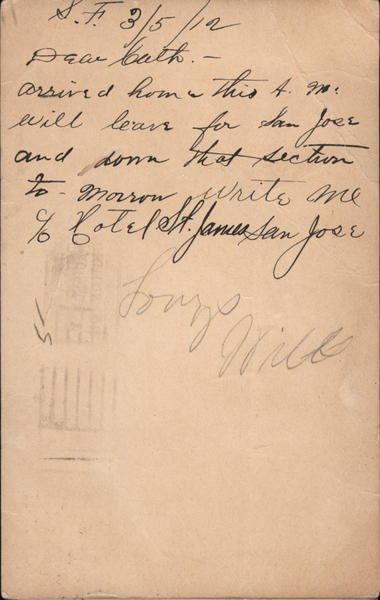 S.F. 3/5/12
Dear Cath. -
arrived home this A. M.
will leave for San Jose
and down that section
to-morrow write me
c/o Hotel St. James San Jose
Will